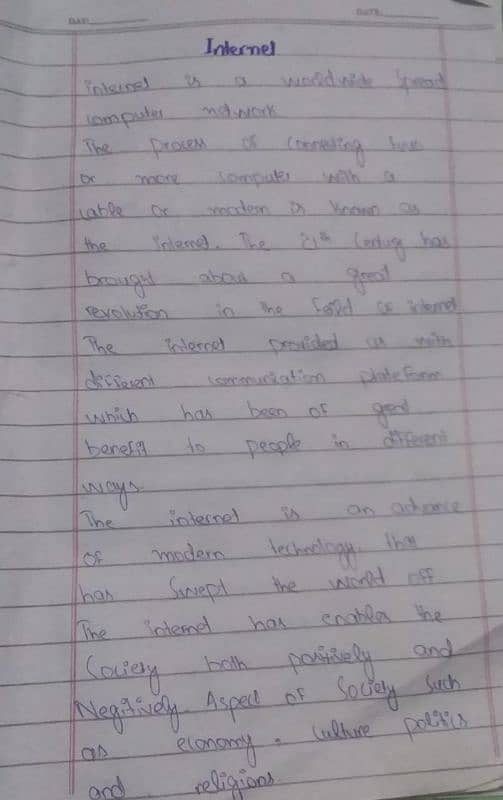 DATE
Internel
internel is a worldwide spread
computer network
The process of connecting two
or more computer with a
cable or modem is known as
the internel. The 21th Century has
brought about a great
revolution in the feild of internel
The internel provided us with
different communication plateform
which has been of great
benefit to people in different
ways.
The internel is an advance
of modern technology that
has Swept the world off
The internel has enables the
Society both positively and
Negitively. Aspect of Society such
as economy, culture politics
and religions.